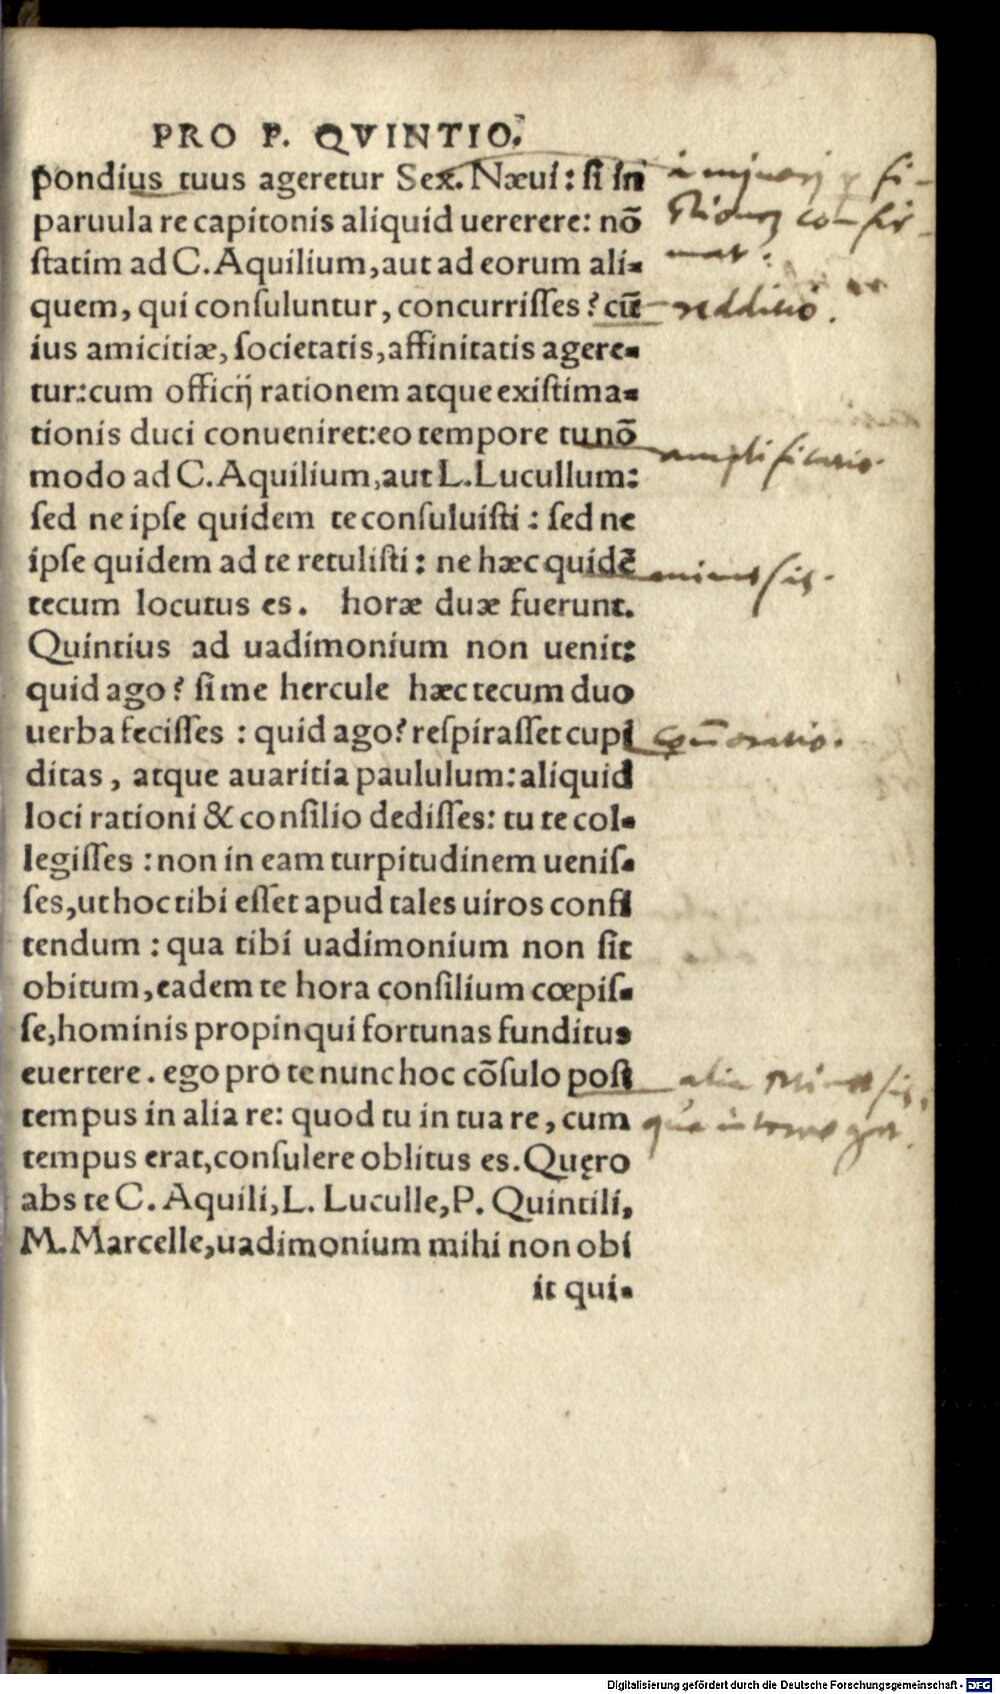 PRO P. QVINTIO.
pondius tuus ageretur Sex. Næui: si in
paruula re capitonis aliquid uererere: nõ
statim ad C. Aquilium, aut ad eorum ali-
quem, qui consuluntur, concurrisses? cũ
ius amicitiæ, societatis, affinitatis agere-
tur: cum officij rationem atque existima-
tionis duci conueniret: eo tempore tu nõ
modo ad C. Aquilium, aut L. Lucullum:
sed ne ipse quidem te consuluisti: sed ne
ipse quidem ad te retulisti: ne hæc quidẽ
tecum locutus es. horæ duæ fuerunt.
Quintius ad uadimonium non uenit:
quid ago? si me hercule hæc tecum duo
uerba fecisses: quid ago? respirasset cupi
ditas, atque auaritia paululum: aliquid
loci rationi & consilio dedisses: tu te col-
legisses: non in eam turpitudinem uenis-
ses, ut hoc tibi esset apud tales uiros confi
tendum: qua tibi uadimonium non sit
obitum, eadem te hora consilium cœpis-
se, hominis propinqui fortunas funditus
euertere. ego pro te nunc hoc cõsulo post
tempus in alia re: quod tu in tua re, cum
tempus erat, consulere oblitus es. Quęro
abs te C. Aquili, L. Luculle, P. Quintili,
M. Marcelle, uadimonium mihi non obi
it qui-
a minori
mat.
redditio.
amplificatio.
alia
Digitalisierung gefördert durch die Deutsche Forschungsgemeinschaft - DFG